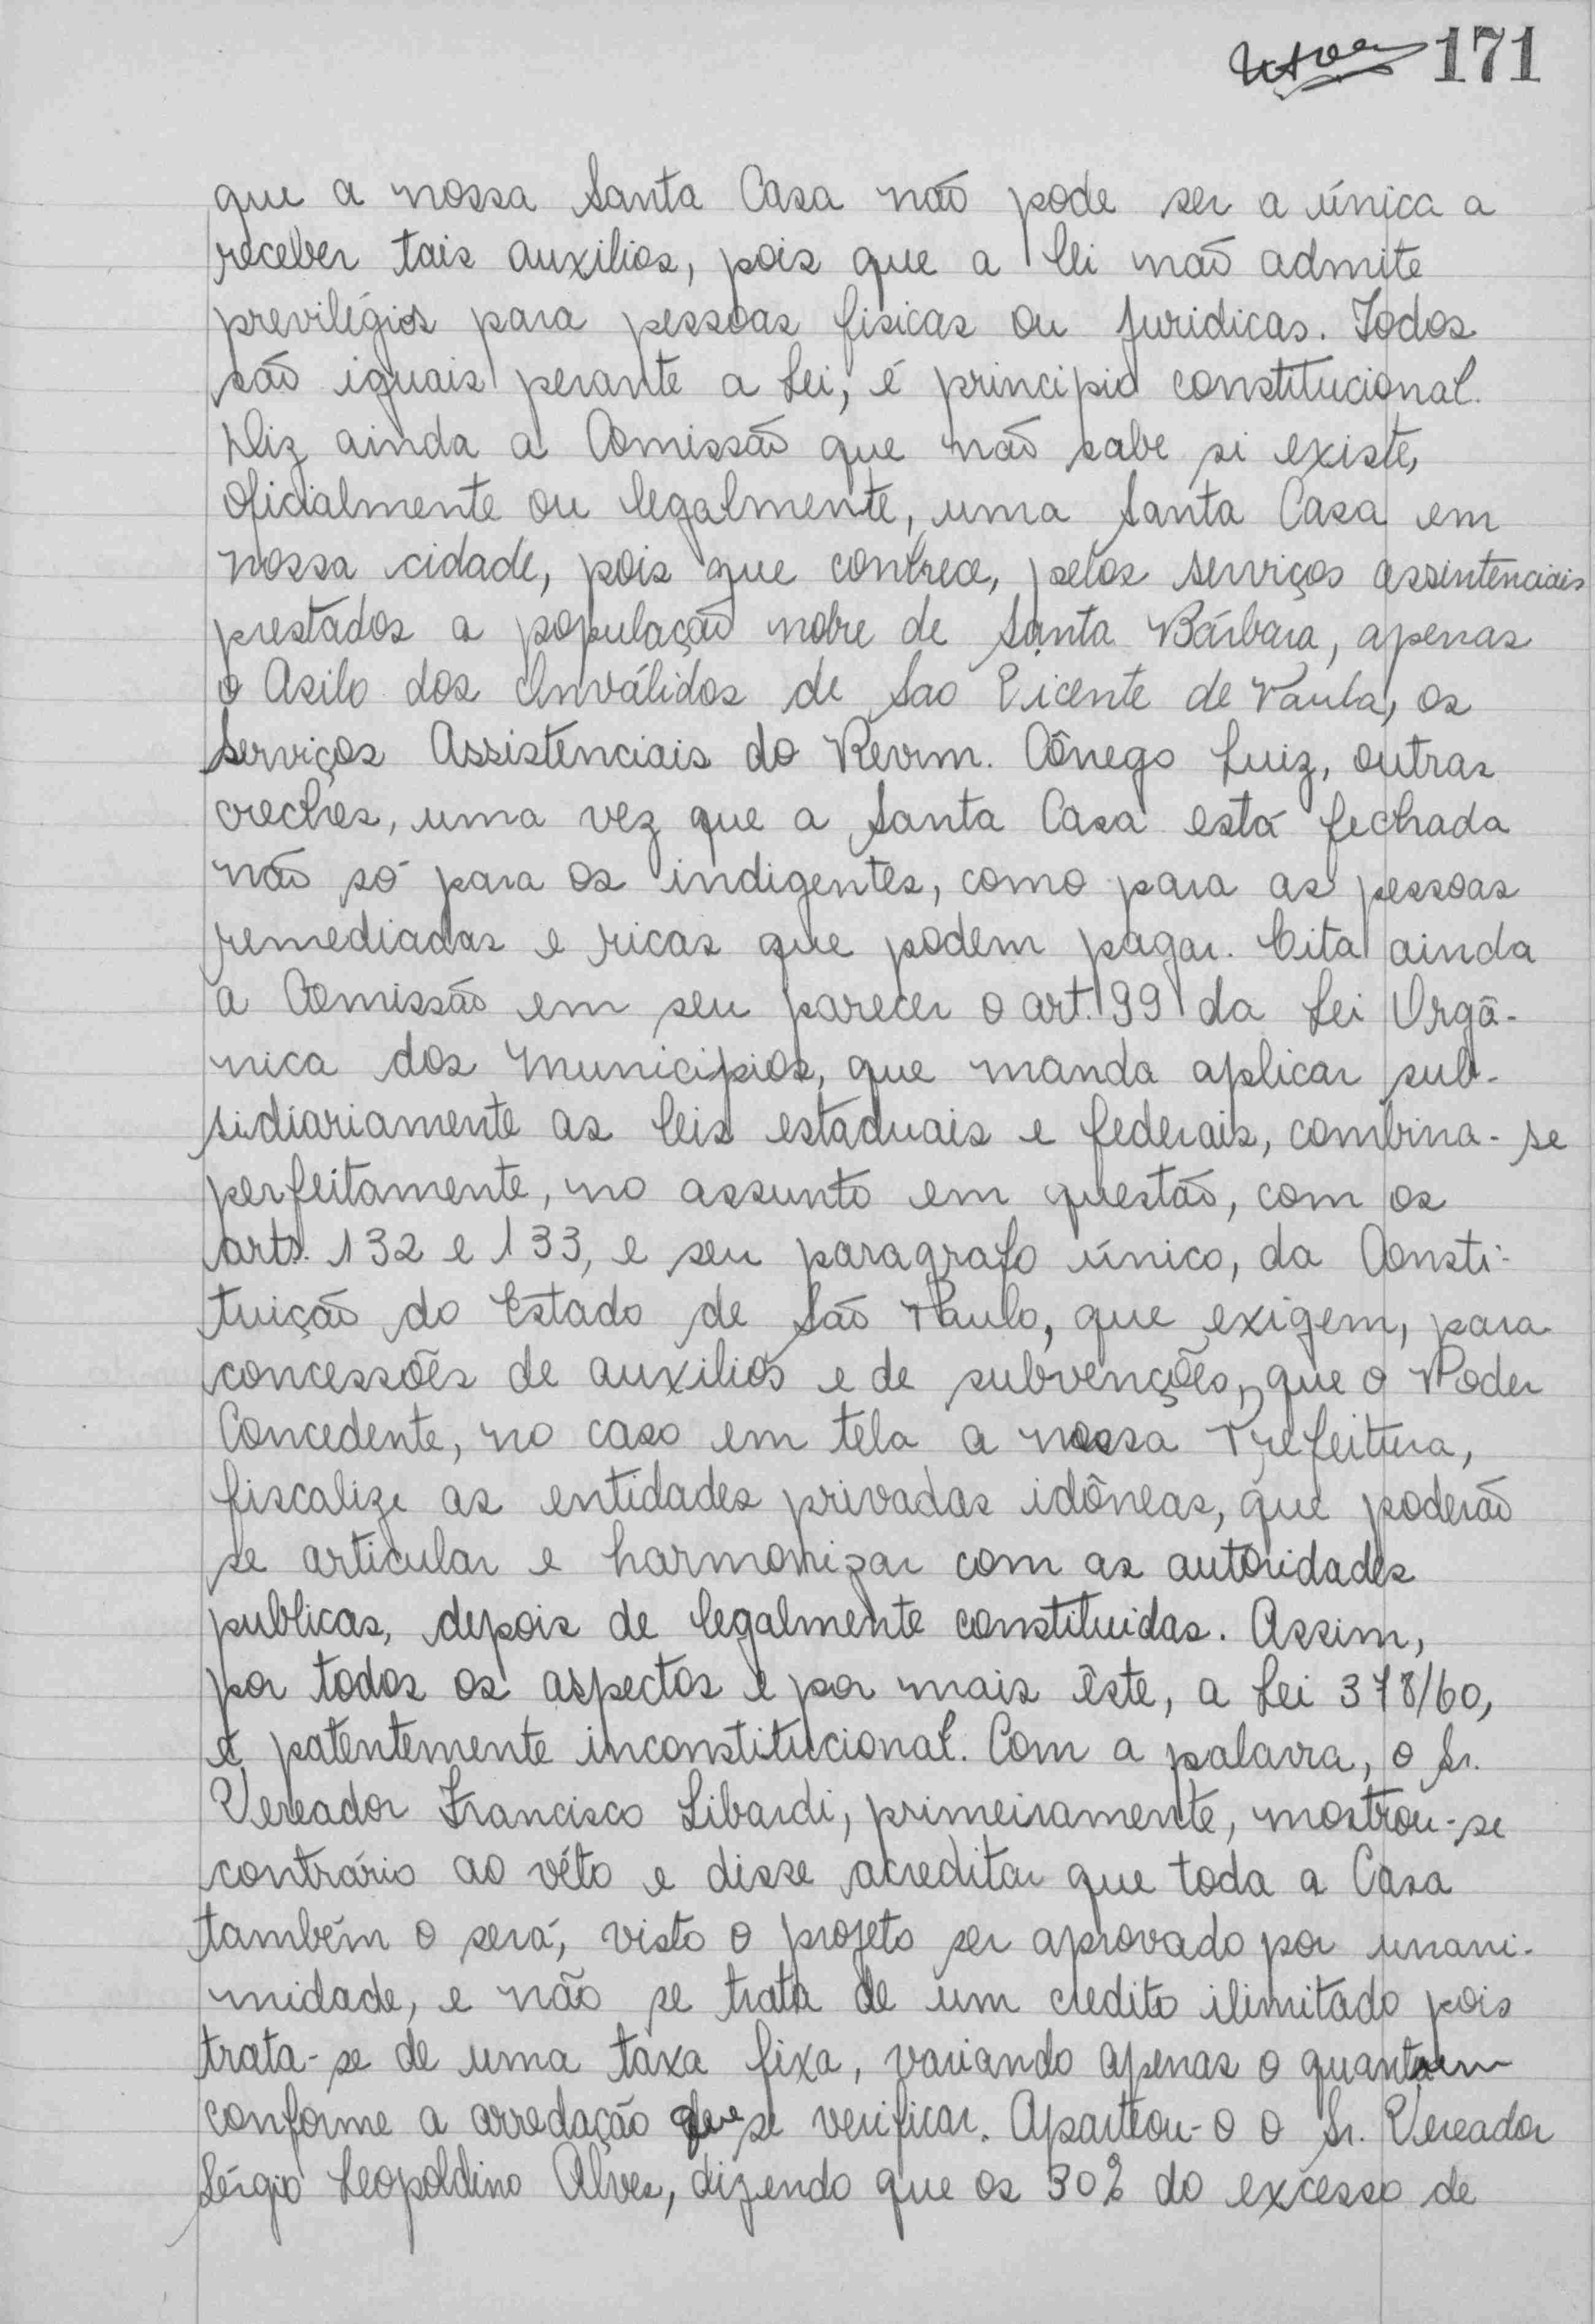 171
que a nossa Santa Casa não pode ser a única a
receber tais auxilios, pois que a lei não admite
previlégios para pessoas fisicas ou juridicas. Todos
são iguais perante a Lei, é principio constitucional.
Diz ainda a Comissão que não sabe si existe,
oficialmente ou legalmente, uma Santa Casa em
nossa cidade, pois que conhece, pelos serviços assintenciais
prestados a população nobre de Santa Bárbara, apenas
o Asilo dos Inválidos de Sao Vicente de Paula, os
Serviços Assistenciais do Revm. Cônego Luiz, outras
creches, uma vez que a Santa Casa está fechada
não só para os indigentes, como para as pessoas
remediadas e ricas que podem pagar. Cita ainda
a Comissão em seu parecer o art. 99 da Lei Orgâ-
nica dos Municipios, que manda aplicar sub-
sidiariamente as leis estaduais e federais, combina-se
perfeitamente, no assunto em questão, com os
arts. 132 e 133, e seu paragrafo único, da Consti-
tuição do Estado de São Paulo, que exigem, para
concessões de auxilios e de subvenções, que o Poder
Concedente, no caso em tela a nossa Prefeitura,
fiscalize as entidades privadas idôneas, que poderão
se articular e harmonizar com as autoridades
publicas, depois de legalmente constituidas. Assim,
por todos os aspectos e por mais êste, a Lei 378/60,
é patentemente inconstitucional. Com a palavra, o Sr.
Vereador Francisco Libardi, primeiramente, mostrou-se
contrário ao véto e disse acreditar que toda a Casa
também o será, visto o projeto ser aprovado por unani-
midade, e não se trata de um credito ilimitado pois
trata-se de uma taxa fixa, variando apenas o quantum
conforme a arredação que se verificar. Aparteou-o o Sr. Vereador
Sérgio Leopoldino Alves, dizendo que os 30% do excesso de